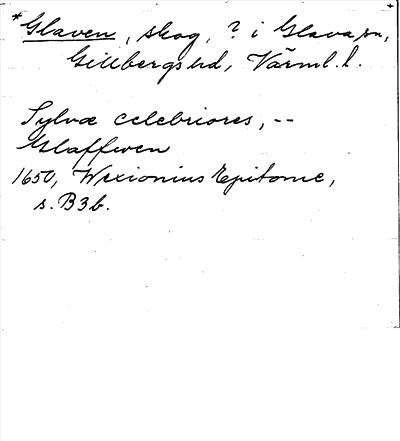 *Glaven, skog, ? i Glava sn,
Gillbergs hd, Värml. l.
Sylvæ celebriores, --
Glaffwen
1650, Wexionius Epitome,
s. B3b.